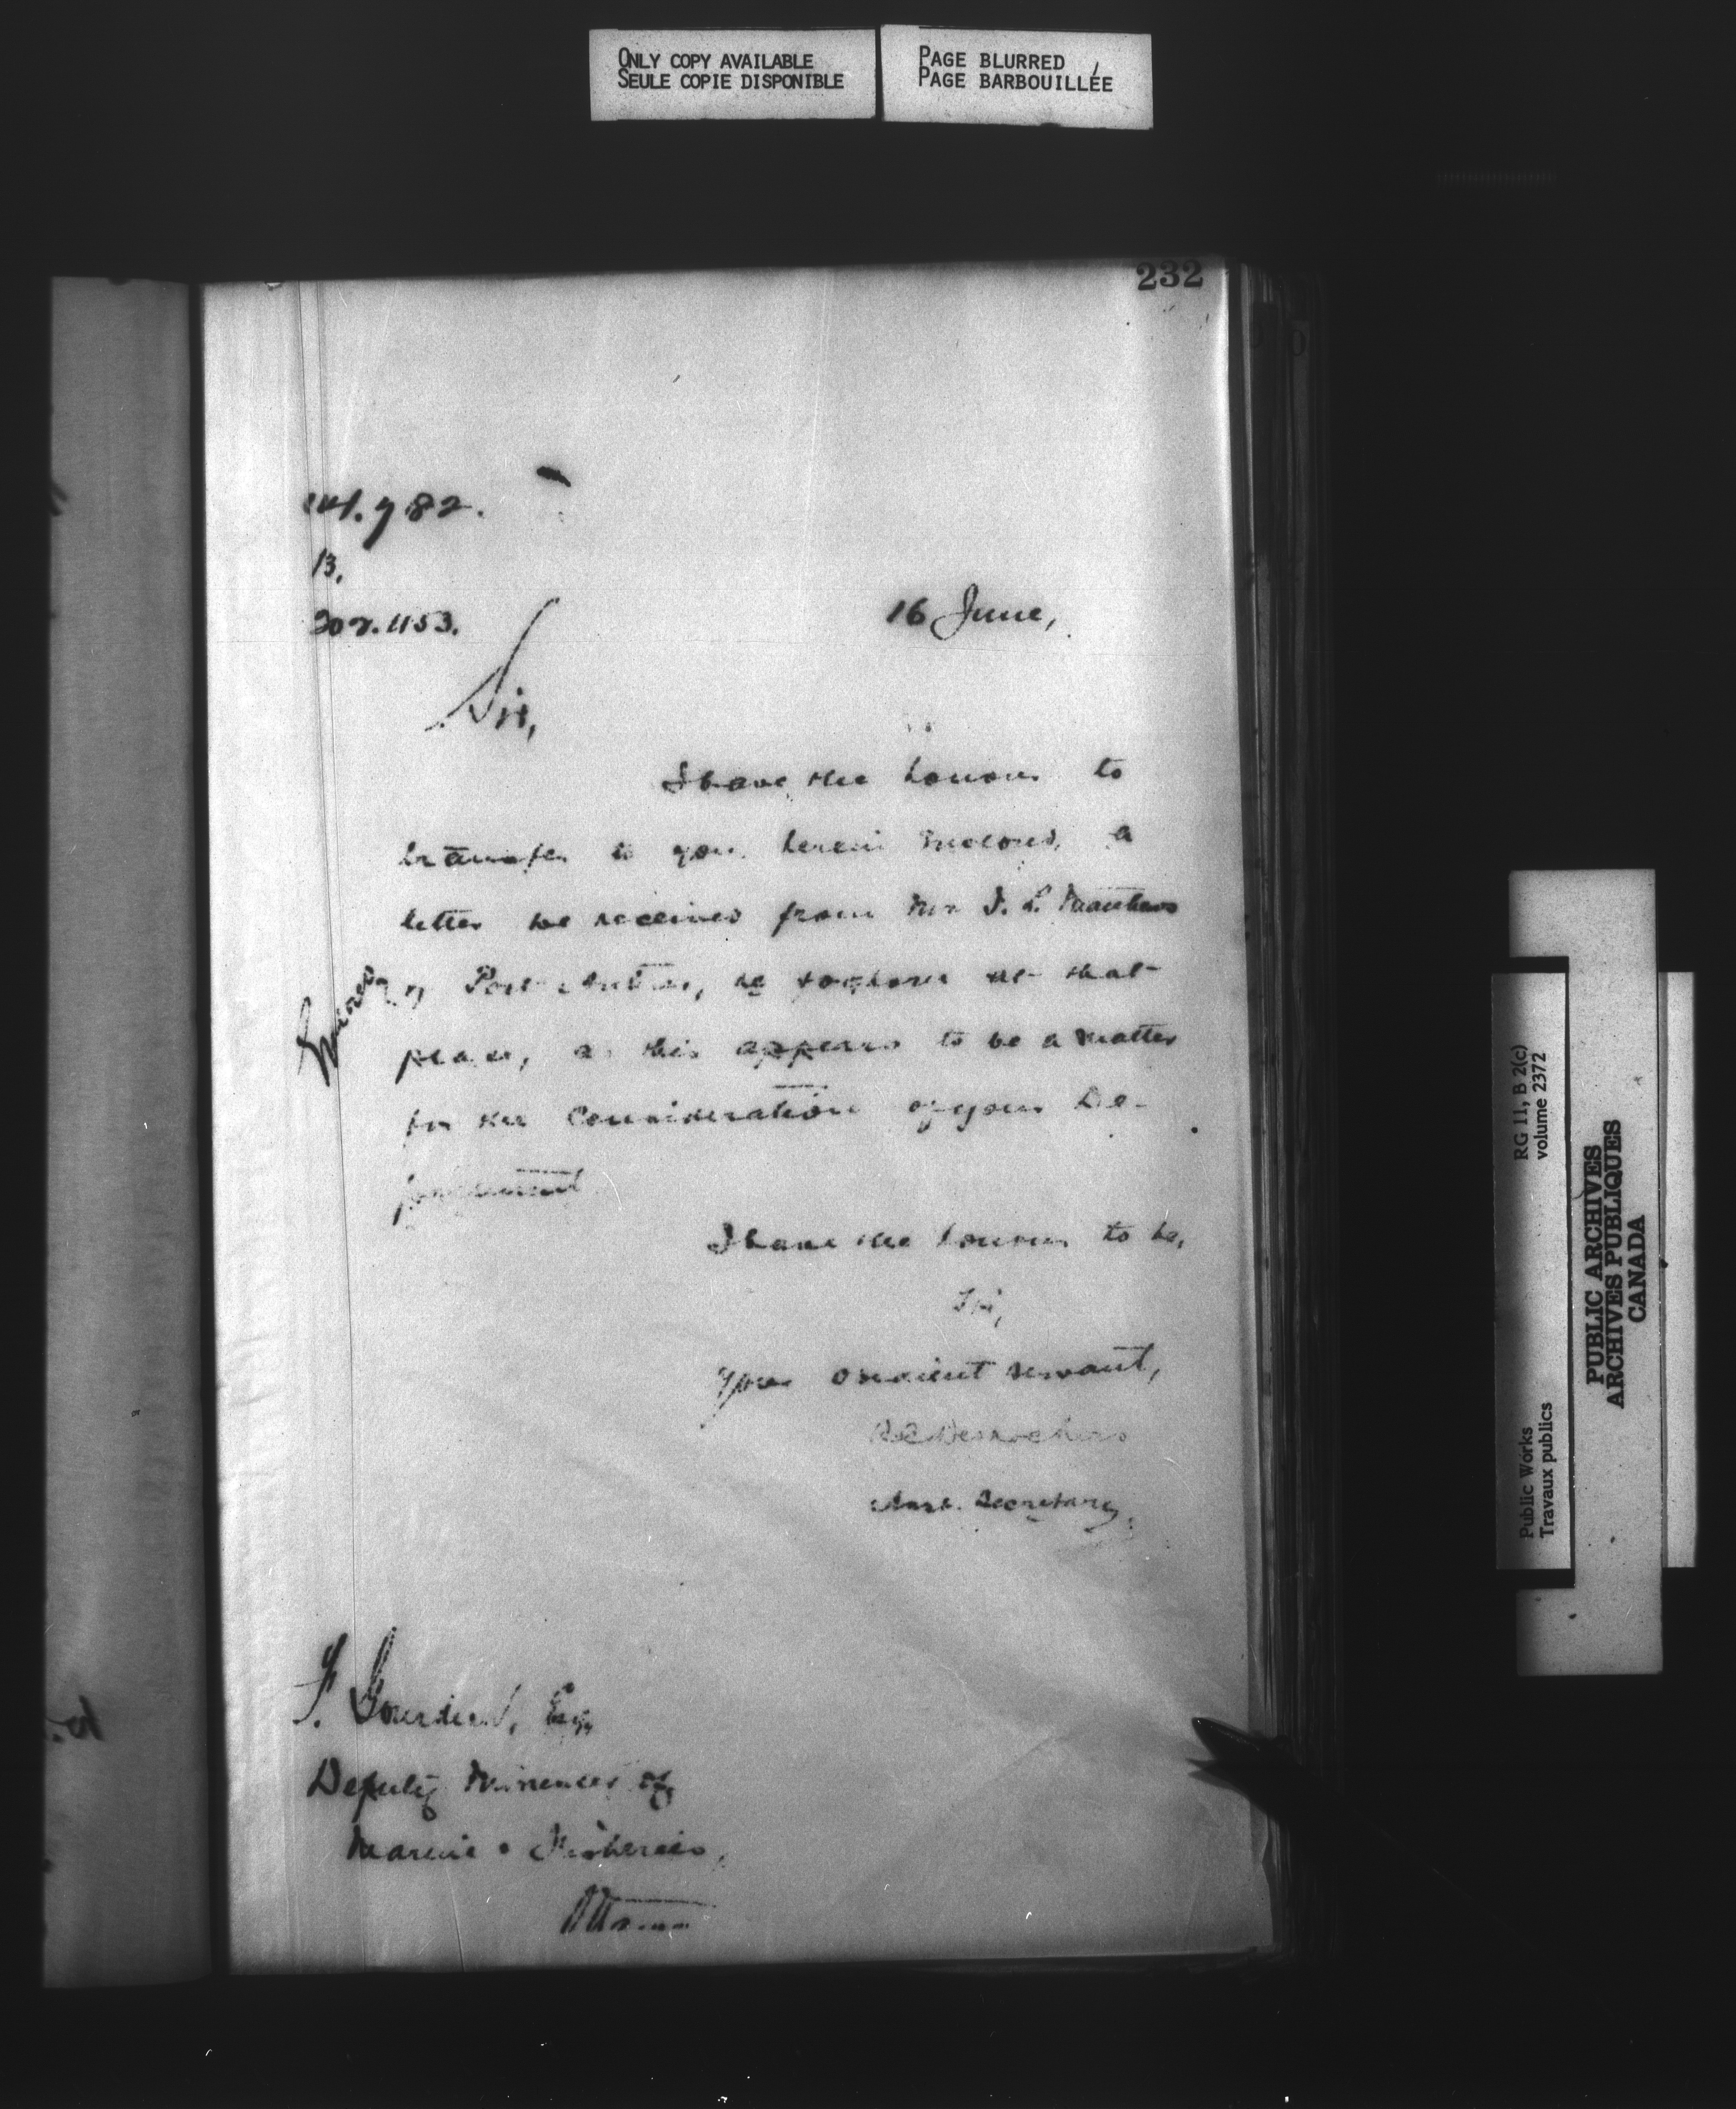 ONLY COPY AVAILABLE
SEULE COPIE DISPONIBLE
PAGE BLURRED
PAGE BARBOUILLÉE
232
782.
13.
1153.
16 June,
Sir,
I have the honour to
transfer to you herein enclosed, a
letter received from Mr J. L. Matthews
of Port Arthur, re foghorn at that
place, as this appears to be a matter
for the consideration of your De-
partment
I have the honour to be,
Sir,
Your obedient servant,
Desrochers
Asst. Secretary.
F. Gourdeau, Esq
Deputy Minister of
Marine & Fisheries,
Ottawa
RG 11, B 2(c)
volume 2372
Public Works
Travaux publics
PUBLIC ARCHIVES
ARCHIVES PUBLIQUES
CANADA